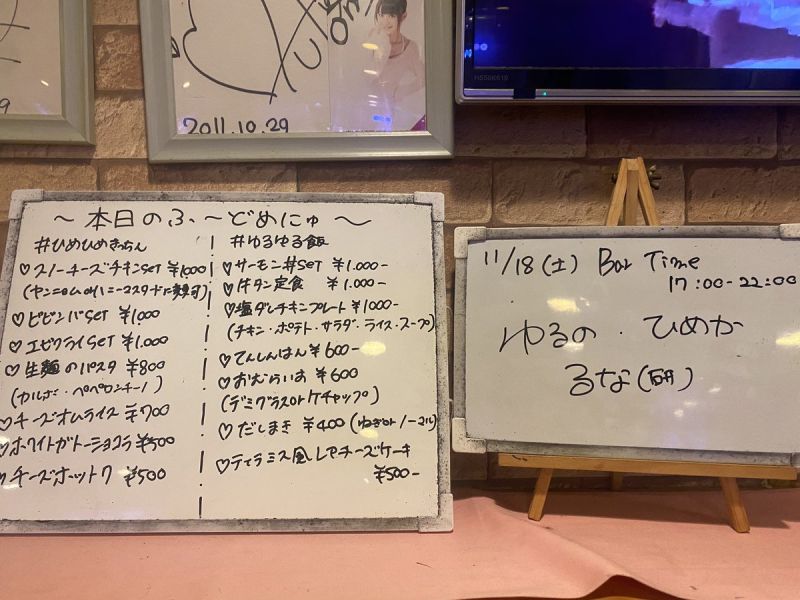 2011.10.29
H550K610
～本日のふ～どめにゅ～
#ひめひめきっちん
♡スノーチーズチキンSET ¥1000
(ヤンニョムorハニーマスタードに変更可)
♡ビビンバSET ¥1.000
♡エビフライSET ¥1.000
♡生麺のパスタ ¥800
(カルボ・ペペロンチーノ)
♡チーズオムライス ¥700
♡ホワイトガトーショコラ ¥500
♡チーズホットク ¥500
#ゆるゆる飯
♡サーモン丼SET ¥1.000-
♡牛タン定食 ¥1.000-
♡塩ダレチキンプレート ¥1000-
(チキン・ポテト・サラダ・ライス・スープ)
♡てんしんはん ¥600-
♡おむらいす ¥600
(デミグラスorケチャップ)
♡だしまき ¥400 (ねぎor ノーマル)
♡ティラミス風レアチーズケーキ
¥500-
11/18(土) Bar Time
17:00-22:00
ゆるの・ひめか
るな(研)